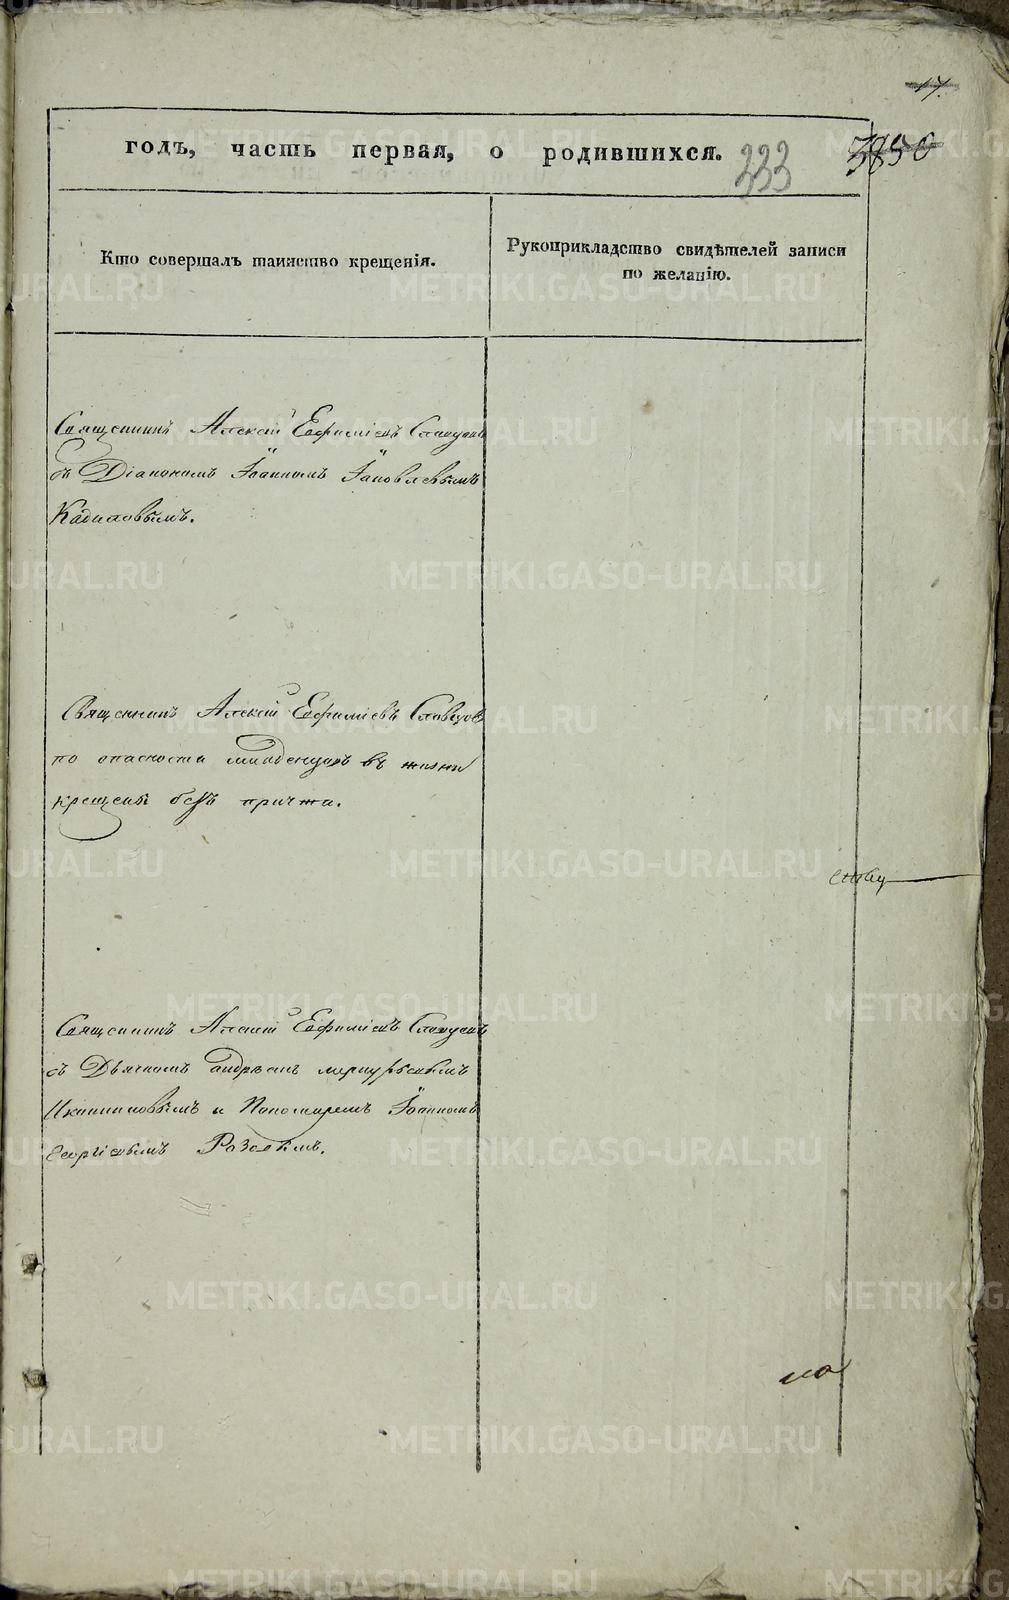 17.
годъ, часть первая, о родившихся.
333
3856
Кто совершалъ таинство крещенія.
Рукоприкладство свидѣтелей записи
по желанію.
Священникъ Алексій Евфиміевъ Словцовъ
съ Діакономъ Іоанномъ Іаковлевымъ
Кадиловымъ.
Священникъ Алексій Евфиміевъ Словцовъ
по опасности младенцовъ въ жизни
крещены безъ причта.
Священникъ Алексій Евфиміевъ Словцовъ
съ Дьячкомъ Андреемъ
и Пономаремъ Іоанномъ
Георгіевымъ
METRIKI.GASO-URAL.RU